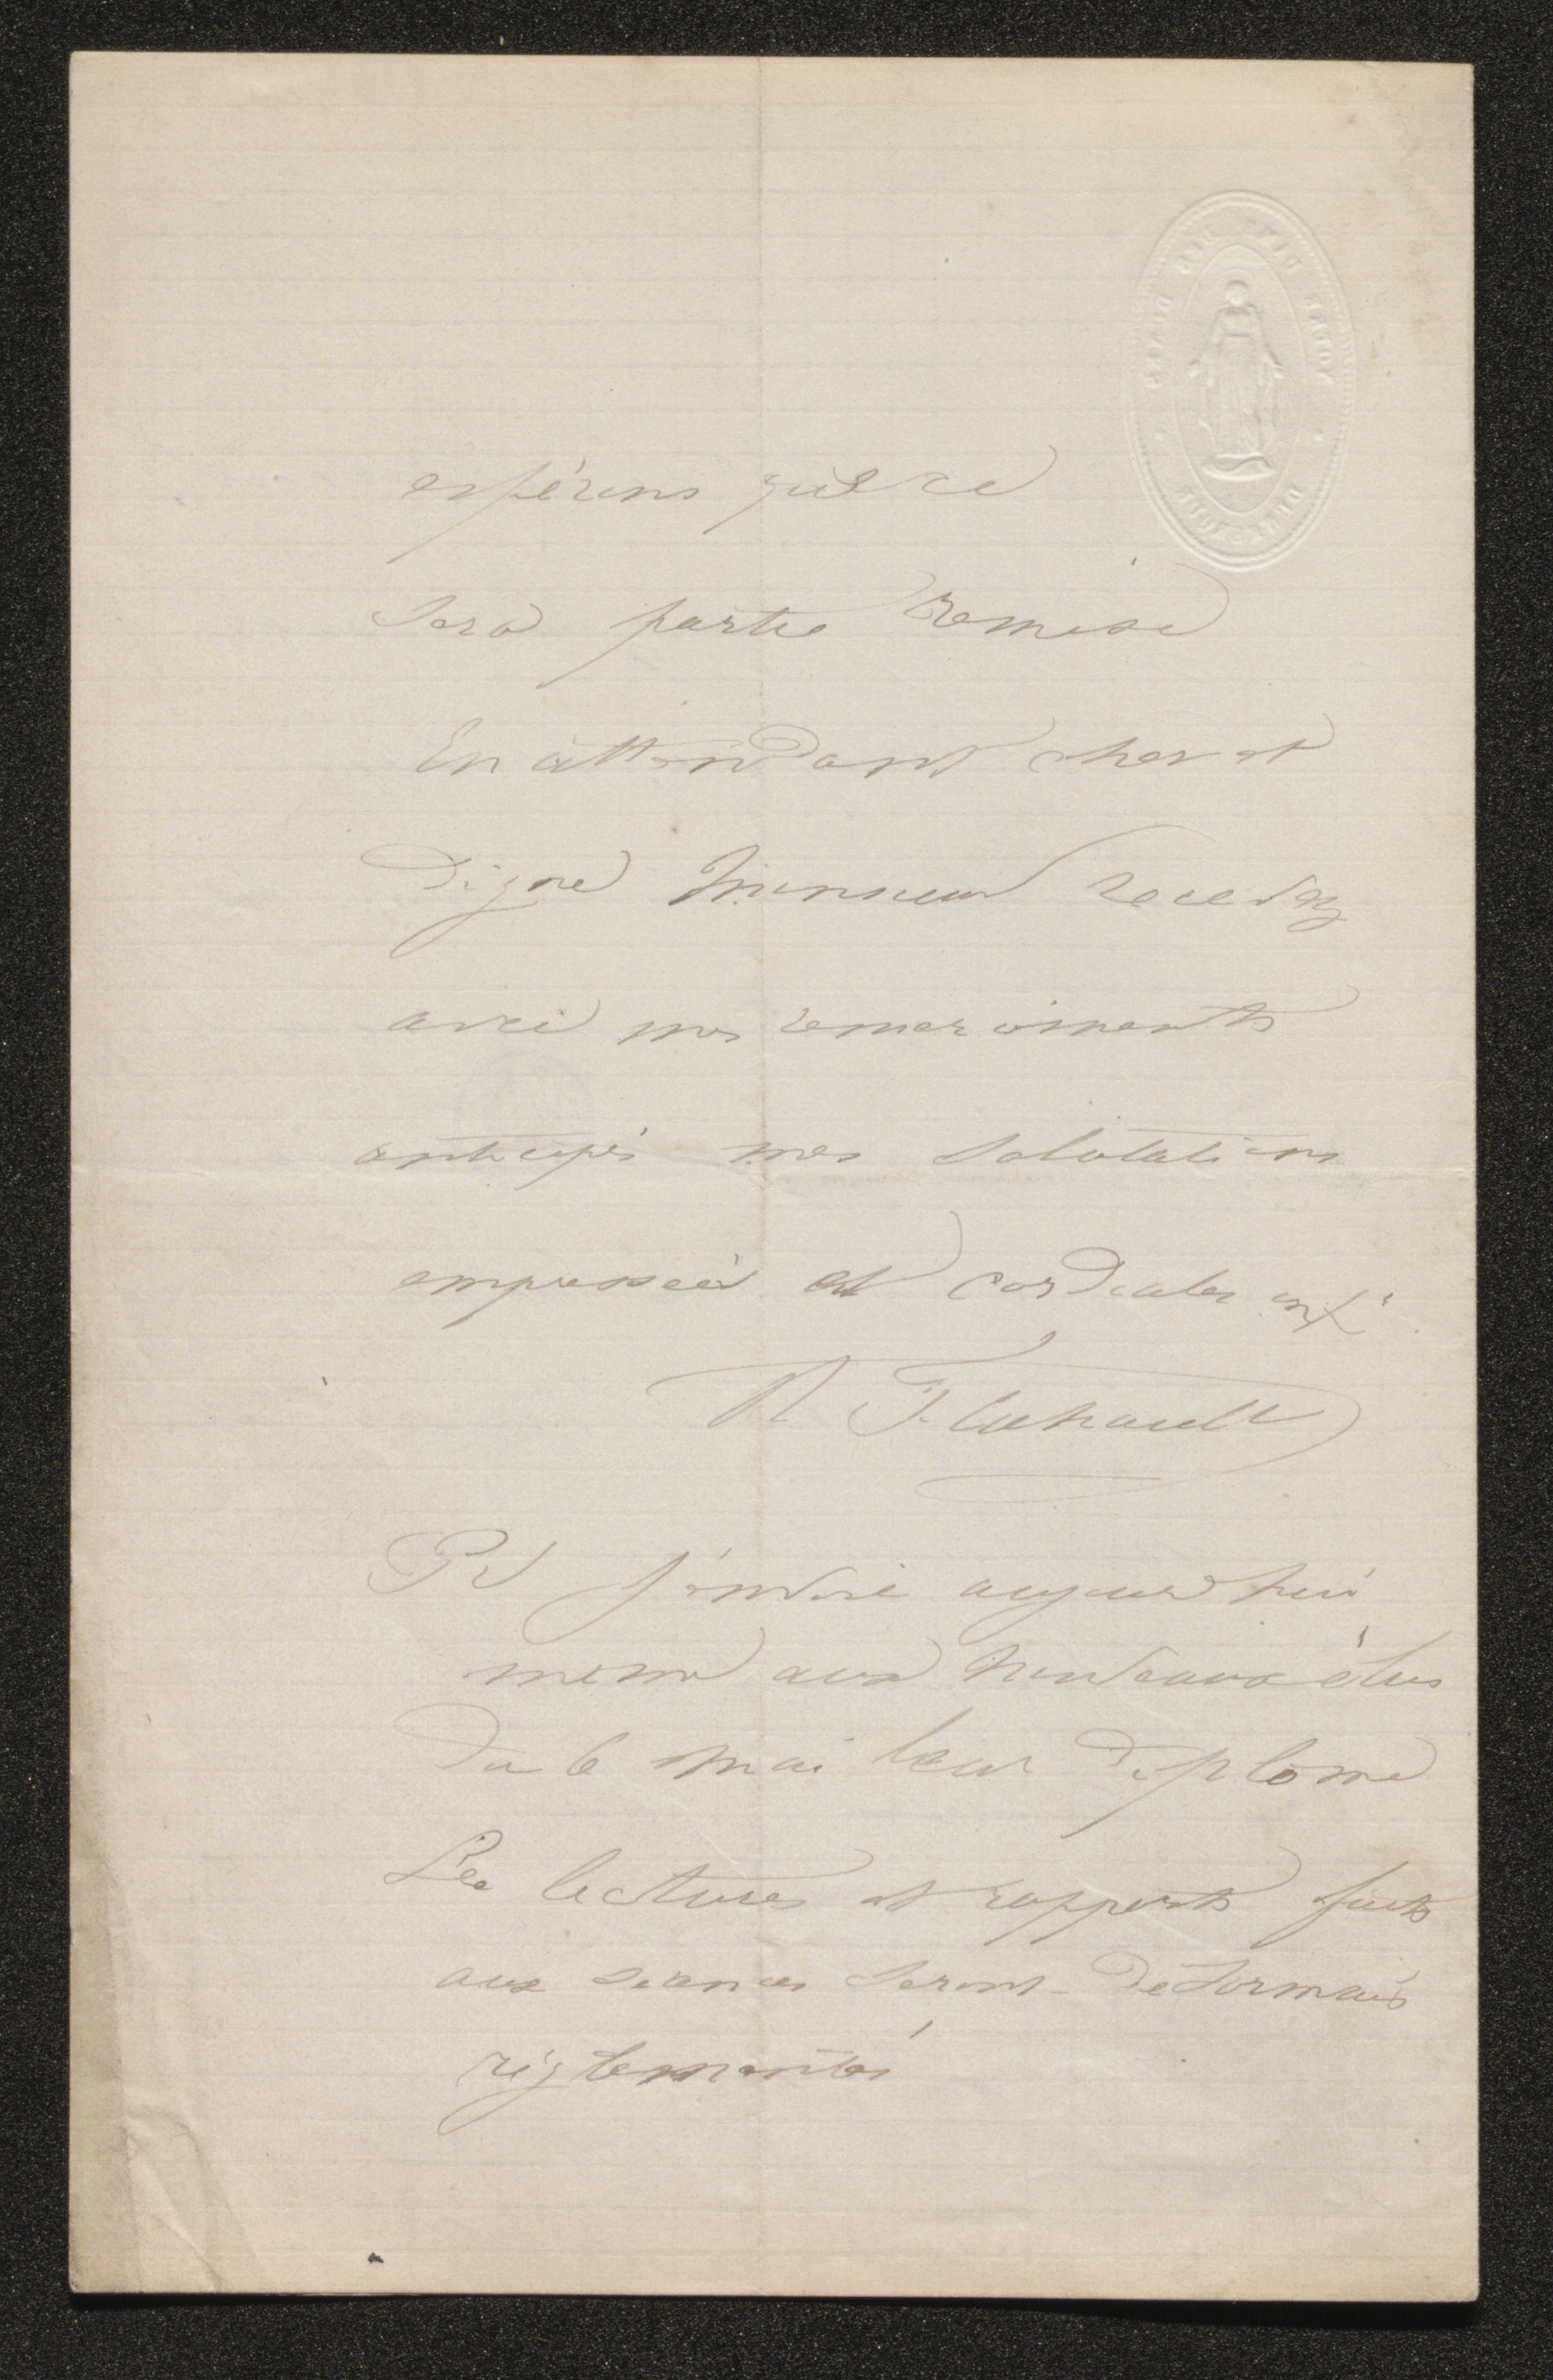 espérons que ce
sera partie remise
En attendant cher et
digne Monsieur recevez
avec mes remerciments
anticipés mes salutations
empressées et cordiales
R Flahault
PS J'envoie aujourd'hui
meme aux nouveaux élus
du 6 mai leur diplome
Les lectures et rapports faits
aux séances seront désormais
réglementés